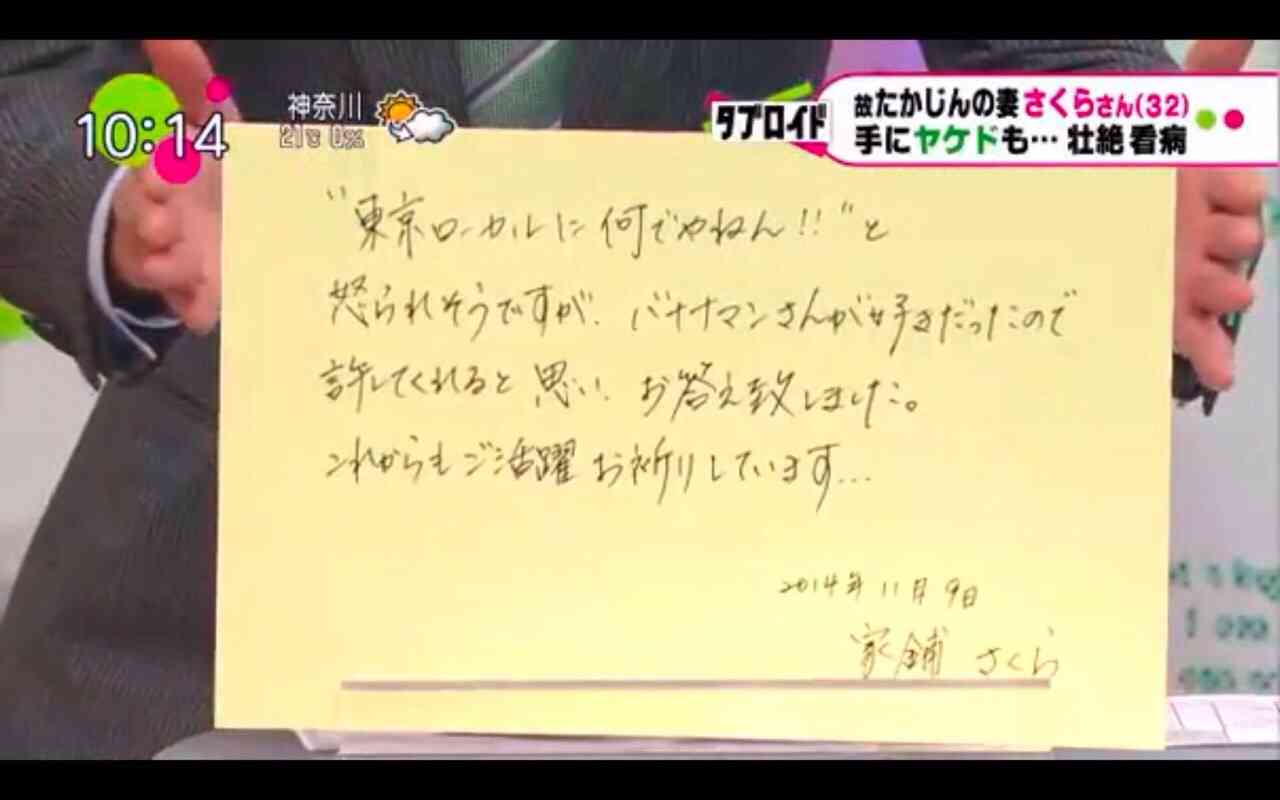 10:14
神奈川
21℃ 0%
タブロイド
故たかじんの妻 さくらさん(32)
手にヤケドも… 壮絶看病
"東京ローカルに何でやねん!!"と
怒られそうですが、バナナマンさんが好きだったので
許してくれると思い、お答え致しました。
これからもご活躍お祈りしています…
2014年11月9日
家鋪 さくら